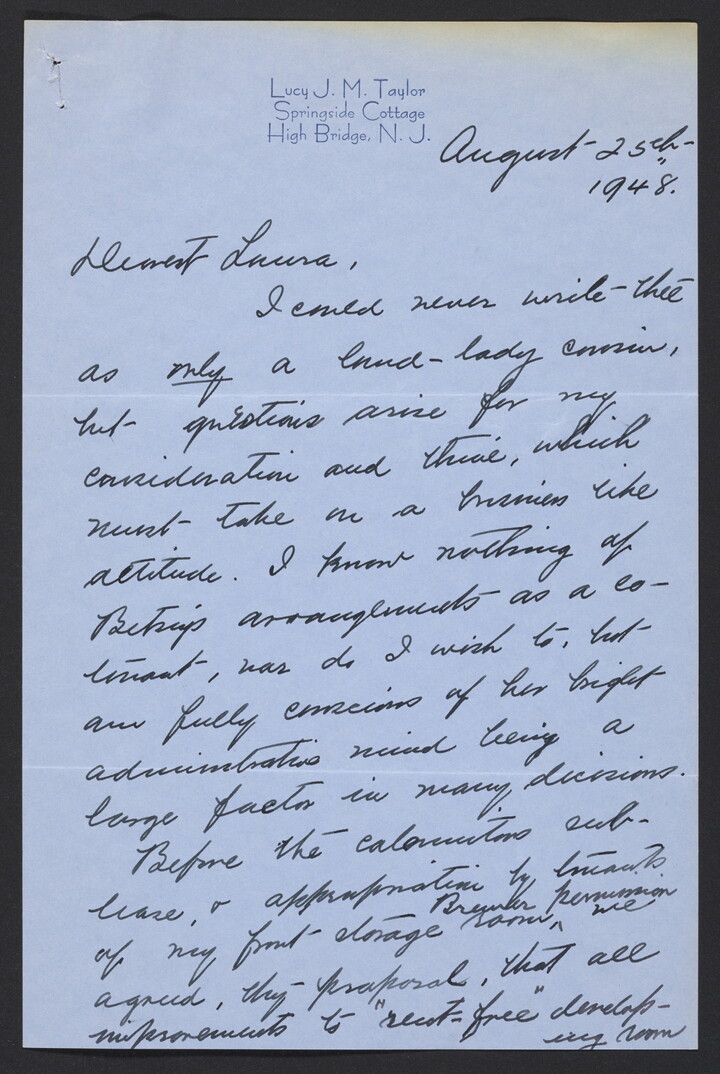 Lucy J. M. Taylor
Springside Cottage
High Bridge, N. J.
August 25th
1948.
Dearest Laura,
I could never write thee
as only a land-lady cousin,
but questions arise for my
consideration and thine, which
must take on a business like
attitude. I know nothing of
Betsy's arrangements as a co-
tenant, nor do I wish to, but
am fully conscious of her bright
administrative mind being a
large factor in many decisions.
Before the calamitous sub-
lease, & appropriation by tenants
Brewer permission
of my front storage room, we
agreed, thy proposal, that all
improvements to "rent-free" develop-
ing room